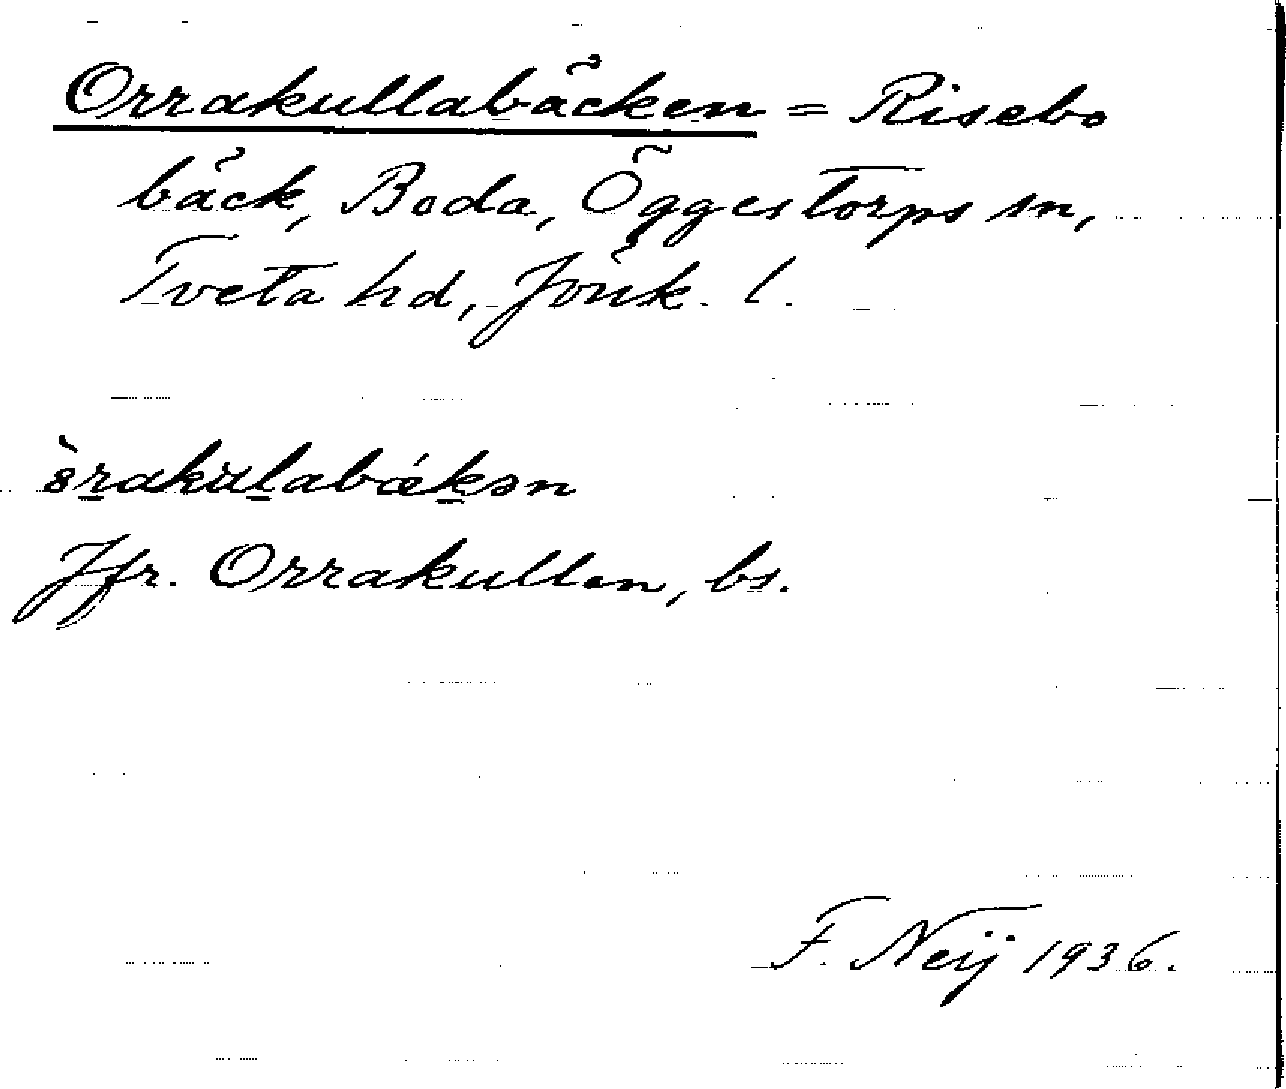 Orrakullabäcken = Risebo
bäck, Boda, Öggestorps sn,
Tveta hd, Jönk. l.
òrakulabǽkən
Jfr. Orrakullen, bs.
F. Neij 1936.